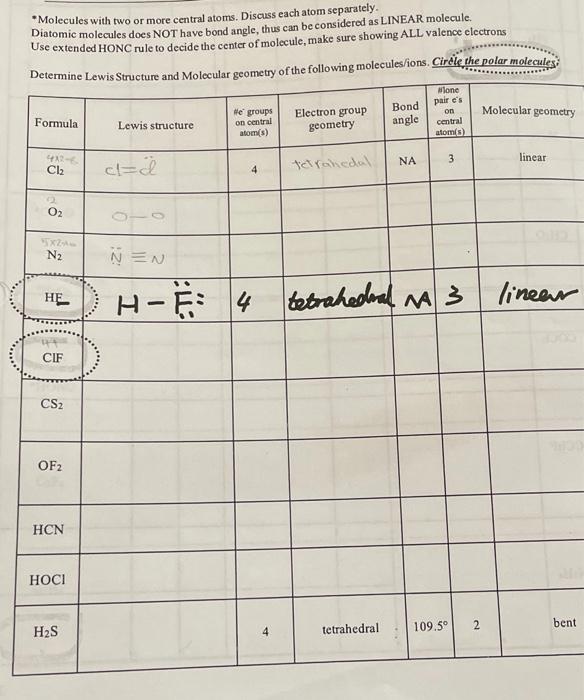 *Molecules with two or more central atoms. Discuss each atom separately.
Diatomic molecules does NOT have bond angle, thus can be considered as LINEAR molecule.
Use extended HONC rule to decide the center of molecule, make sure showing ALL valence electrons
Determine Lewis Structure and Molecular geometry of the following molecules/ions. Circle the polar molecules:
Formula Lewis structure #e⁻ groups on central atom(s) Electron group geometry Bond angle #lone pair e's on central atom(s) Molecular geometry
Cl₂ cl=cl 4 tetrahedal NA 3 linear
O₂ O–O
N₂ N≡N
HF H–F 4 tetrahedral NA 3 linear
ClF
CS₂
OF₂
HCN
HOCl
H₂S 4 tetrahedral 109.5° 2 bent